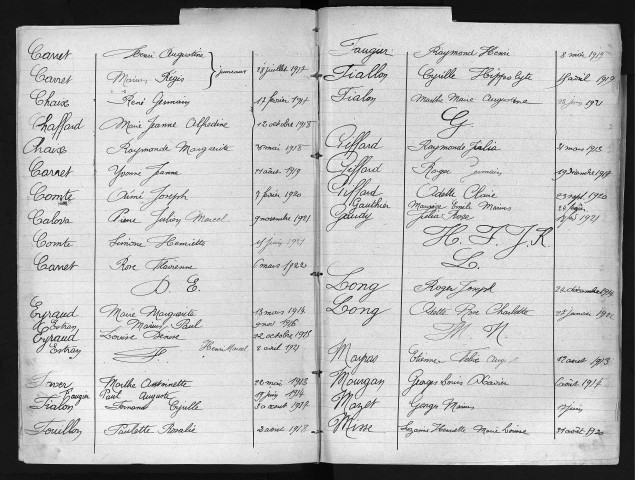 Carret Henri Augustin
Carret Marius Régis } jumeaux 28 juillet 1917
Chaux René Germain 17 février 1917
Chaffard Marie Jeanne Alfredine 12 octobre 1918
Chaux Raymonde Marguerite mai 1918
Carret Yvonne Jeanne août 1919
Comte Rémé Joseph 7 février 1920
Calova Pierre Julien Marcel 9 novembre 1921
Comte Simone Henriette juin 1921
Carret Rose mars 1922
D. E.
Eyraud Marie Marguerite 13 mars 1914
Estran Marius Paul 1916
Eyraud Louise Denise 22 octobre 1915
Estran Henri Marcel 2 avril 1921
F
Marthe Antoinette 22 mai 1913
Paul Auguste juin 1914
Fialon Fernand Cyrille 30 août 1914
Fouillon Paulette Rosalie 2 août 1918
Faugur Raymond Henri 8 mai 1919
Fiallon Cyrille Hippolyte avril 1919
Fialon Marthe Marie Augustine juin 1921
G
Giffard Raymonde 21 mars 1913
Giffard Roger Germain 19 décembre 1914
Giffard Odette Claire 23 sept 1920
Gauthier Maurice Emile Marius
Gaudy Julia Rose 1921
H. I. J. K
L.
Long Roger Joseph 22 décembre 1914
Long Odette Rose Charlotte 27 janvier 1922
M N
Mayras Etienne Félix août 1913
Mourgan Georges Louis Xavier août 1914
Mazet Georges Marius juin
Misse Henriette Marie Louise 31 août 1920